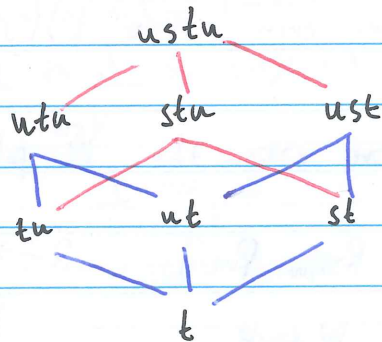 ustu
utu stu ust
tu ut st
t